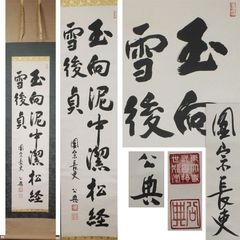 玉向泥中潔松経
雪後貞
圓宗長吏 公典
玉向泥中潔松経
雪後貞
圓宗長吏 公典
玉向
雪後
公典
圓宗長吏
公典